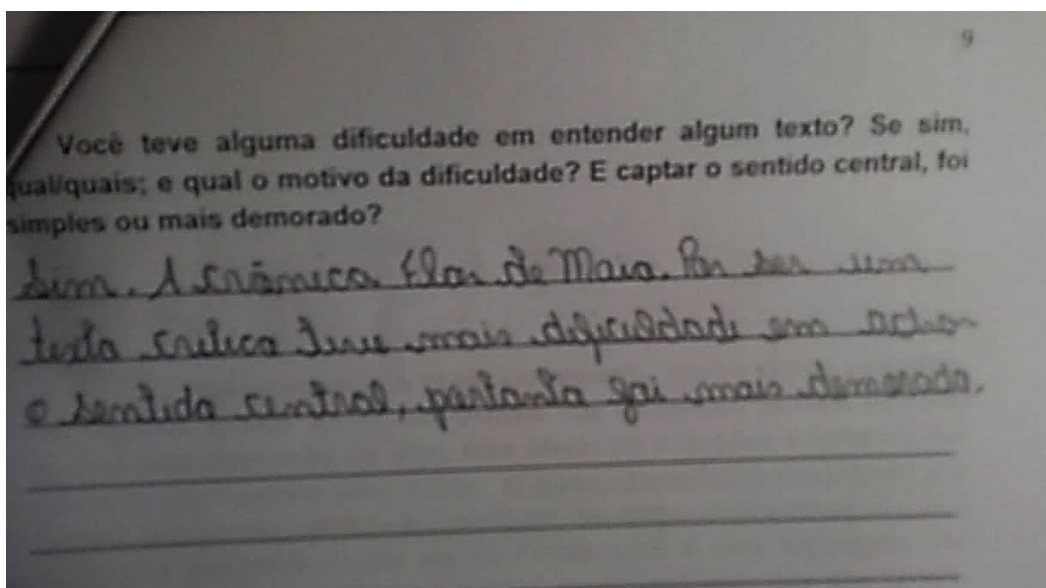 9
Você teve alguma dificuldade em entender algum texto? Se sim,
qual/quais; e qual o motivo da dificuldade? E captar o sentido central, foi
simples ou mais demorado?
Sim. A crônica Flor de Maio. Por ser um
texto crítico tive mais dificuldade em achar
o sentido central, portanto foi mais demorado.